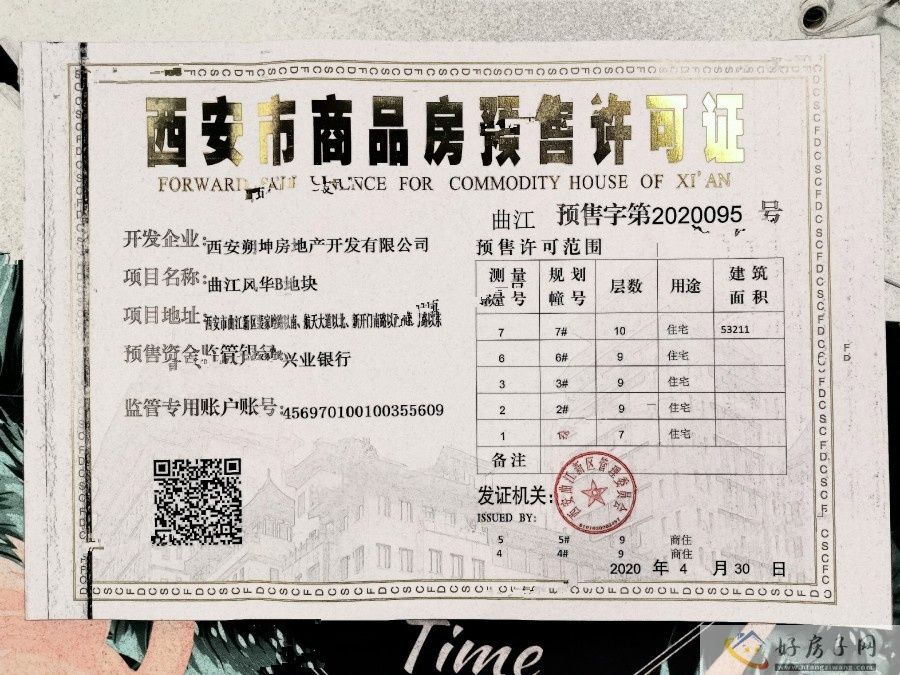 西安市商品房预售许可证
FOR COMMODITY HOUSE OF XI'AN
曲江 预售字第2020095号
开发企业:西安朔坤房地产开发有限公司
项目名称:曲江风华B地块
项目地址:
预售资金监管银行:兴业银行
监管专用账户账号:456970100100355609
预售许可范围
测量 规划 层数 用途 建筑
幢号 幢号 面积
7 7# 10 住宅 53211
6 6# 9 住宅
3 3# 9 住宅
2 2# 9 住宅
1 1# 7 住宅
备注
发证机关:
ISSUED BY:
西安曲江新区管理委员会
5 5# 9 商住
4 4# 9 商住
2020 年 4 月 30 日
Time
好房子网